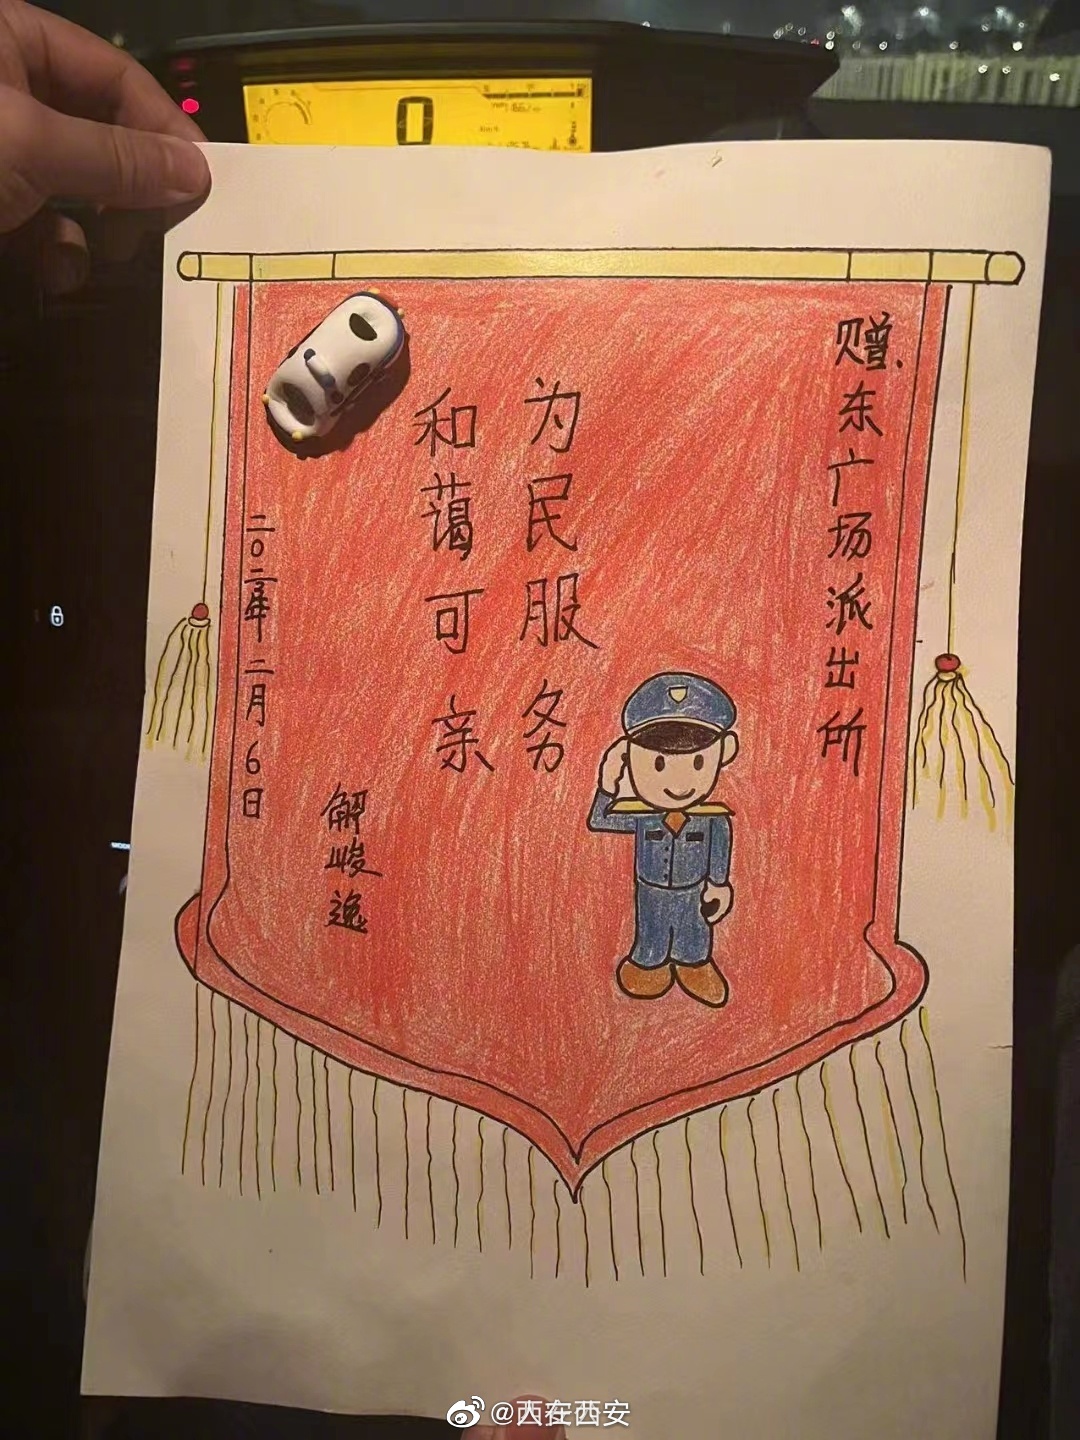 赠、东广场派出所
为民服务
和蔼可亲
解峻逸
二0二三年二月6日
0
@西在西安